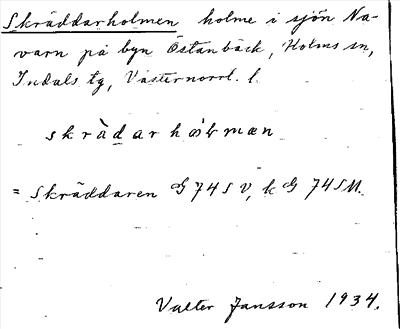 Skräddarholmen holme i sjön Na-
varn på byn Östanbäck, Holms sn,
Indals tg, Västernorrl. l.
skrà̈darhɷ́lmæn
= Skräddaren G 74 S V, k G 74 S M.
Valter Jansson 1934.